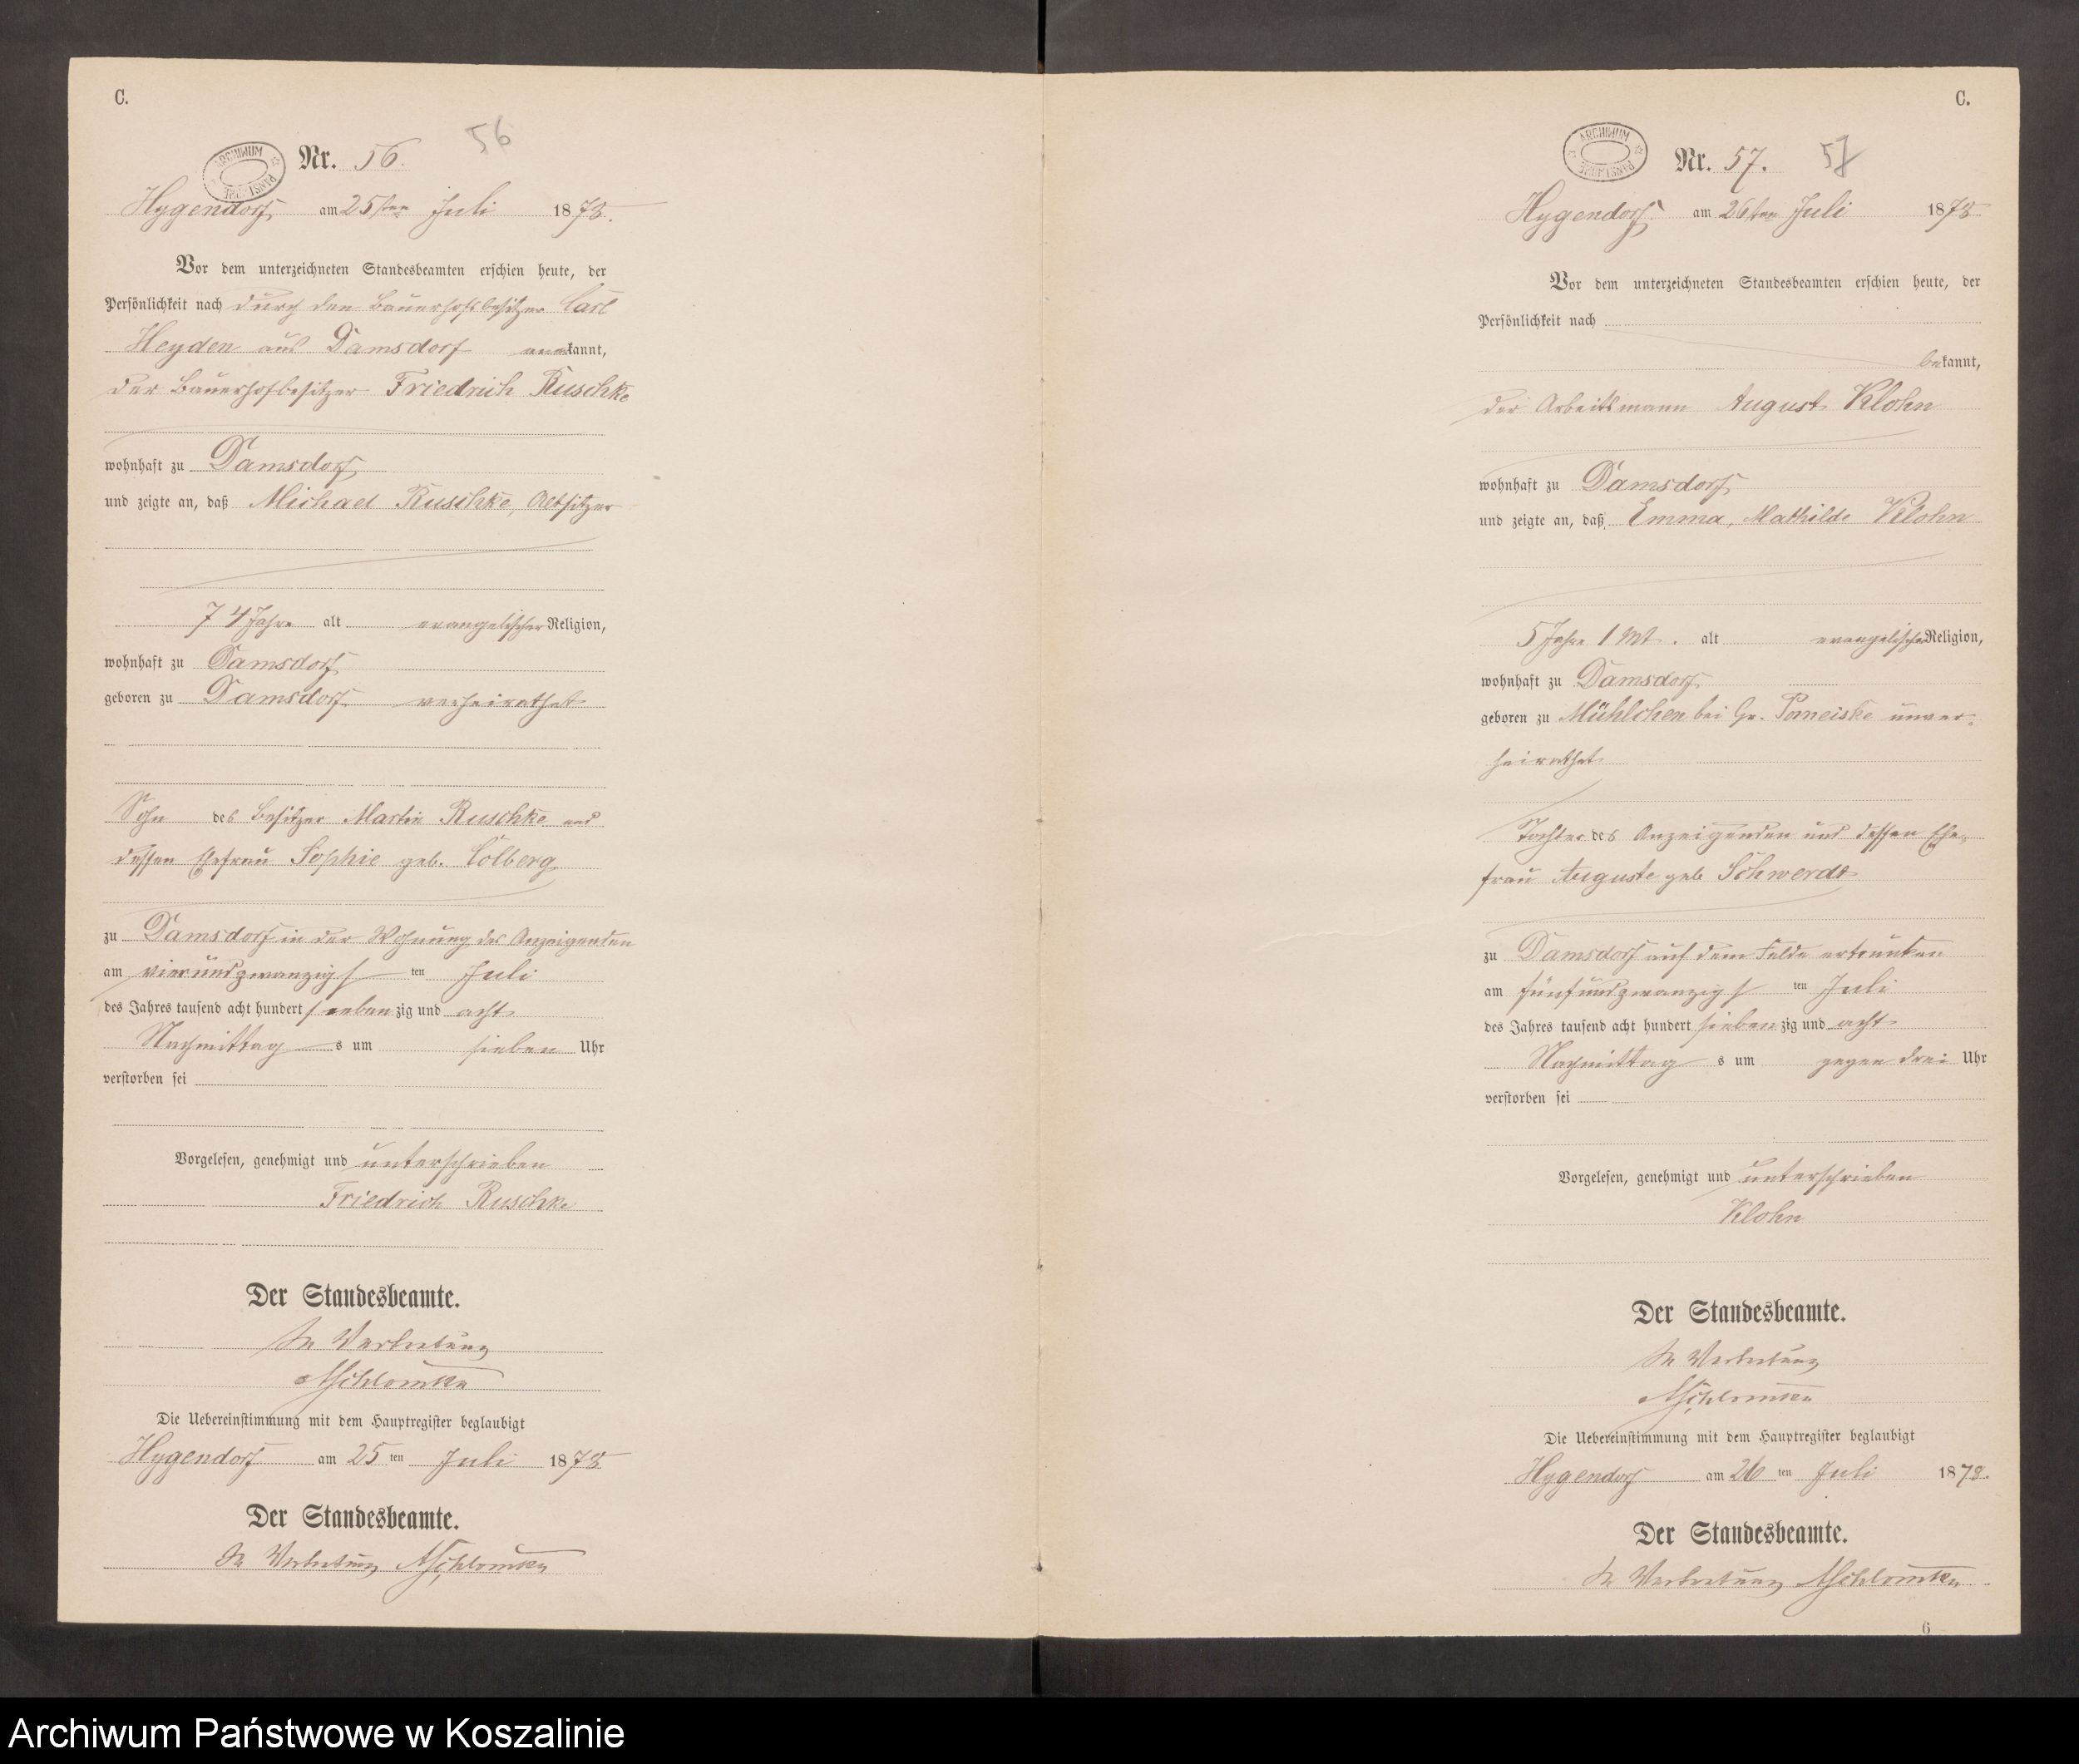 C.
ARCHIWUM PAŃSTWOWE
Nr. 56. 56
Hygendorf, am 25sten Juli 1878.
Vor dem unterzeichneten Standesbeamten erschien heute, der
Persönlichkeit nach durch den Bauerhofsbesitzer Carl
Heyden aus Damsdorf anerkannt,
der Bauerhofbesitzer Friedrich Ruschke
wohnhaft zu Damsdorf,
und zeigte an, daß Michael Ruschke, Altsitzer
74 Jahre alt evangelischer Religion,
wohnhaft zu Damsdorf,
geboren zu Damsdorf, verheirathet
Sohn des Besitzer Martin Ruschke und
dessen Ehefrau Sophie geb. Colberg
zu Damsdorf in der Wohnung des Anzeigenden
am vierundzwanzigs ten Juli
des Jahres tausend acht hundert sieben zig und acht
Nachmittag s um sieben Uhr
verstorben sei
Vorgelesen, genehmigt und unterschrieben
Friedrich Ruschke
Der Standesbeamte.
In Vertretung
Die Uebereinstimmung mit dem Hauptregister beglaubigt
Hygendorf am 25 ten Juli 1878
Der Standesbeamte.
In Vertretung
C.
ARCHIWUM PAŃSTWOWE
Nr. 57. 57
Hygendorf, am 26sten Juli 1878
Vor dem unterzeichneten Standesbeamten erschien heute, der
Persönlichkeit nach
bekannt,
der Arbeitsmann August Klohn
wohnhaft zu Damsdorf,
und zeigte an, daß Emma, Mathilde Klohn
5 Jahre 1 Mt. alt evangelischer Religion,
wohnhaft zu Damsdorf,
geboren zu Mühlchen bei Gr. Pomeiske unver-
heirathet
Tochter des Anzeigenden und dessen Ehe-
frau Auguste geb Schwerdt
zu Damsdorf auf dem Felde ertrunken
am fünfundzwanzigs ten Juli
des Jahres tausend acht hundert sieben zig und acht
Nachmittag s um gegen drei Uhr
verstorben sei
Vorgelesen, genehmigt und unterschrieben
Klohn
Der Standesbeamte.
In Vertretung
Die Uebereinstimmung mit dem Hauptregister beglaubigt
Hygendorf am 26 ten Juli 1878.
Der Standesbeamte.
In Vertretung
6
Archiwum Państwowe w Koszalinie